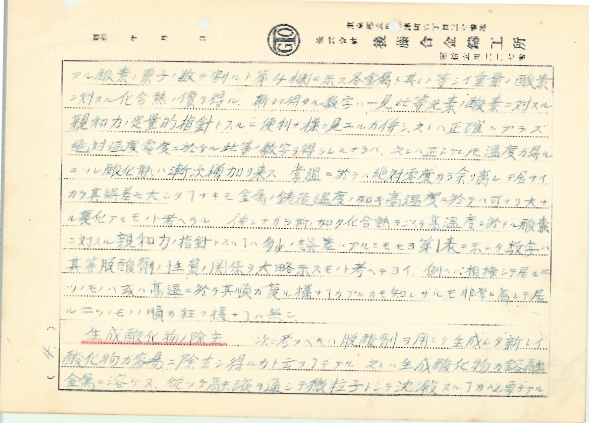 昭和 年 月 日
株式会社 後藤合金鋳工所
アル酸素ノ原子ノ数デ割ルト第4欄ニ示ス各金属ト其レト等シイ重量ノ酸素
ニ対スル化合熱ノ価ヲ得ル、斯クテ得タル数字ハ一見此等元素ノ酸素ニ対スル
親和力ノ定量的指針トスルニ便利ナ様ニ見エルガ併シ之レハ正確ニアラズ
絶対温度零度ニ於ケル此等ノ数字ヲ得ラレルナラバ、之レハ正シク此温度カラ昇ル
ニツレ酸化熱ハ漸次増加ヲ来ス、常温ニ於テハ絶対零度カラ余リ離レテ居ナイ
カラ其誤差ハ大シタコトナキモ金属ノ鋳造温度ノ如キ高温度ニ於テハ可ナリ大ナ
ル変化アルモノト考ヘラル、併シナガラ斯ノ如ク化合熱ヲ以テ高温度ニ於ケル酸素
ニ対スル親和力ノ指針トスルコトハ多少ノ誤差ハアルニモセヨ第1表ニ示シタ数字ハ
其等脱酸剤ノ性質ノ関係ヲ大略示スモノト考ヘテヨイ、例ヘバ相接シテ居ル二
ツノモノハ或ハ高温ニ於テ其順ガ変ル様ナコトガアルカモ知レザルモ非常ニ離レテ居
ル二ツノモノハ順ガ狂フ様ナコトハ無シ
生成酸化物ノ除去 次ニ考フベキハ脱酸剤ヲ用ヒテ生成シタ新シイ
酸化物ガ容易ニ除去シ得ルカト云フコトデアル 之レハ生成酸化物ガ熔融
金属ニ溶ケズ、従ツテ融液ヲ通シテ微粒子トシテ沈澱スルコトガ必要デアル